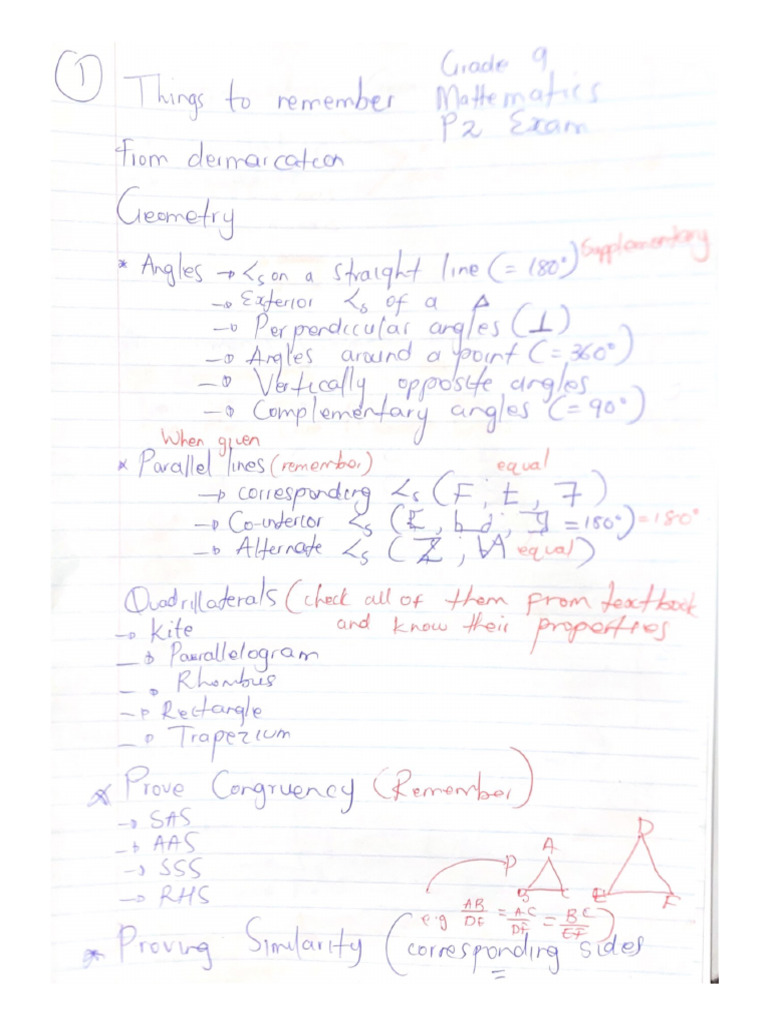 ①
Grade 9
Things to remember Mathematics
P2 Exam
From dermarcation
Geometry
* Angles → ∠s on a straight line (= 180°) Supplementary
→ Exterior ∠s of a Δ
→ Perpendicular angles (⊥)
→ Angles around a point (= 360°)
→ Vertically opposite angles
→ Complementary angles (= 90°)
When given
* Parallel lines (remember) equal
→ corresponding ∠s (F, t, 7)
→ Co-interior ∠s = 180°) = 180°
→ Alternate ∠s (Z ; equal)
Quadrillaterals (check all of them from textbook
→ Kite and know their properties
→ Parrallelogram
→ Rhombus
→ Rectangle
→ Trapezium
* Prove Congruency (Remember)
→ SAS
→ AAS
→ SSS
→ RHS
A
B C
D
E F
e.g AB/DE = AC/DF = BC/EF
* Proving Similarity (corresponding sides
=